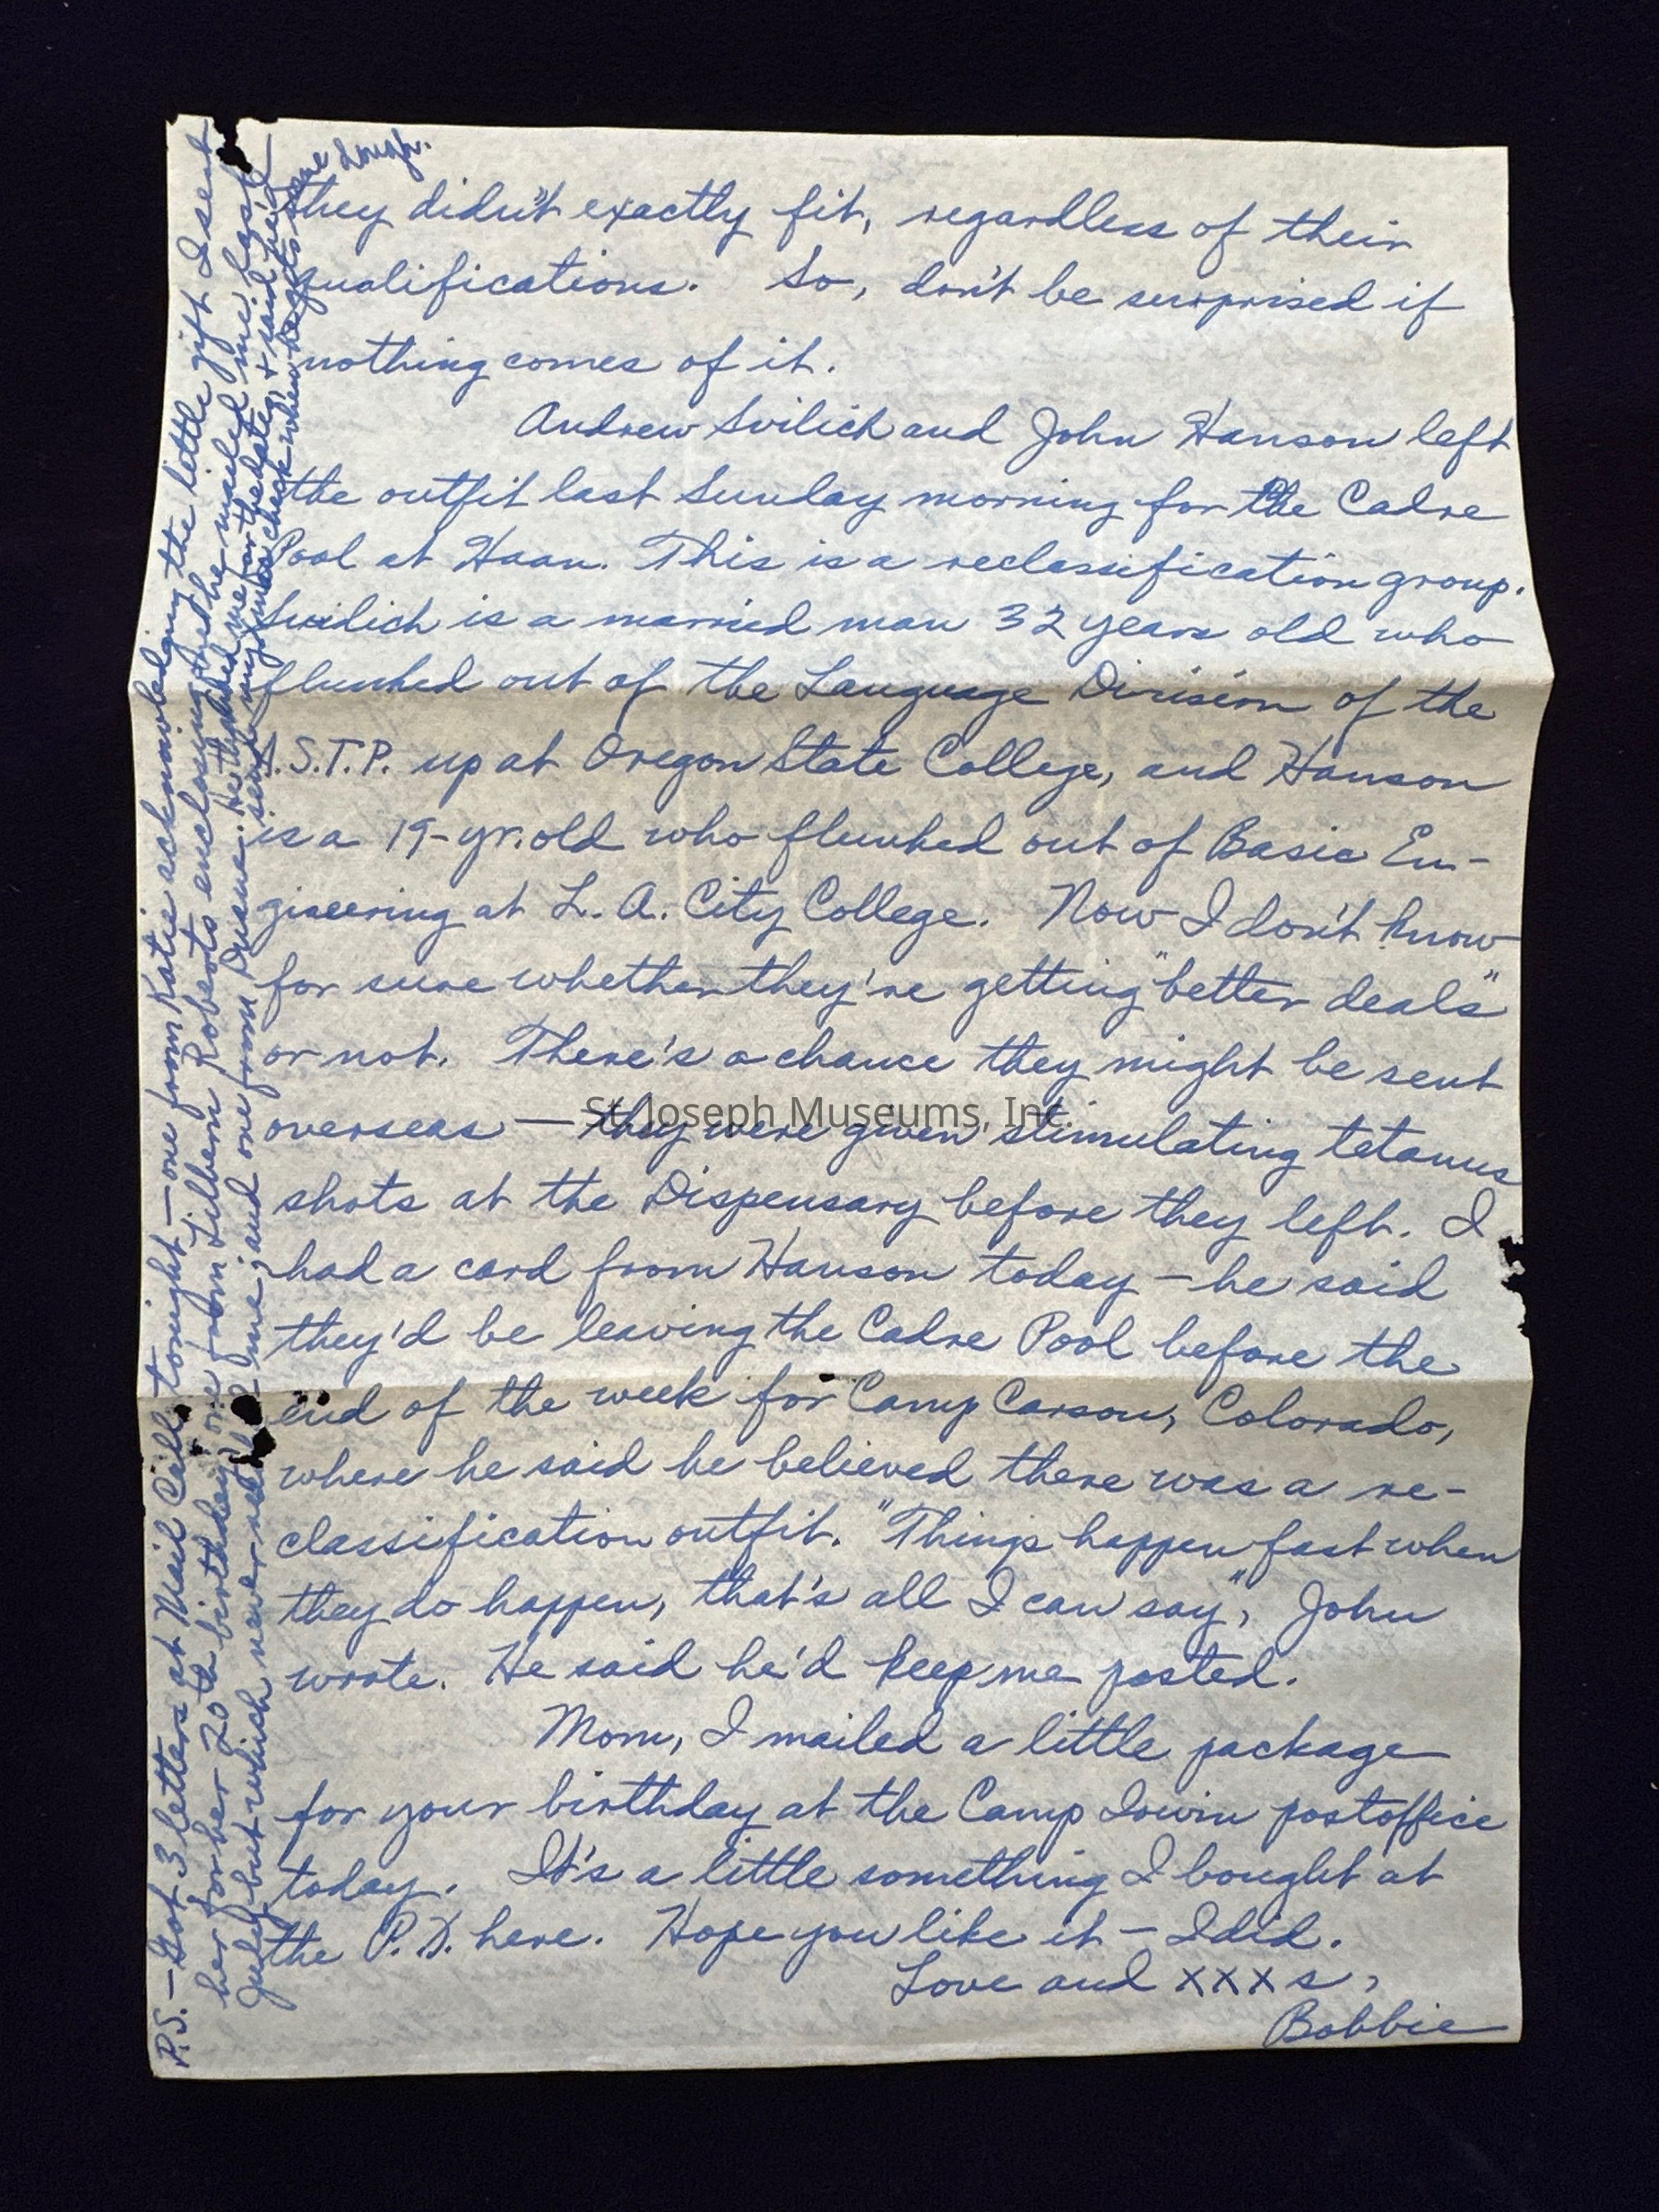 they didn't exactly fit, regardless of their
qualifications. So, don't be surprised if
nothing comes of it.
Andrew Svilich and John Hanson left
the outfit last Sunday morning for the Cadre
Pool at Haan. This is a reclassification group.
Svilich is a married man 32 years old who
flunked out of the Language Division of the
A.S.T.P. up at Oregon State College, and Hanson
is a 19-yr. old who flunked out of Basic En-
gineering at L. A. City College. Now I don't know
for sure whether they're getting "better deals"
or not. There's a chance they might be sent
overseas — they were given stimulating tetanus
shots at the Dispensary before they left. I
had a card from Hanson today — he said
they'd be leaving the Cadre Pool before the
end of the week for Camp Carson, Colorado,
where he said he believed there was a re-
classification outfit. "Things happen fast when
they do happen, that's all I can say", John
wrote. He said he'd keep me posted.
Mom, I mailed a little package
for your birthday at the Camp Irwin postoffice
today. It's a little something I bought at
the P.X. here. Hope you like it — I did.
Love and xxxs,
Bobbie
P.S. — Got 3 letters at Mail Call tonight — one from Katie acknowledging the little gift I sent
her for her 20th birthday; one from Filbern Roberts enclosing the he mailed me last
July but which never me; and one from Duane. He thanked me for the dates, + said he'd
send my check when he gets
St. Joseph Museums, Inc.